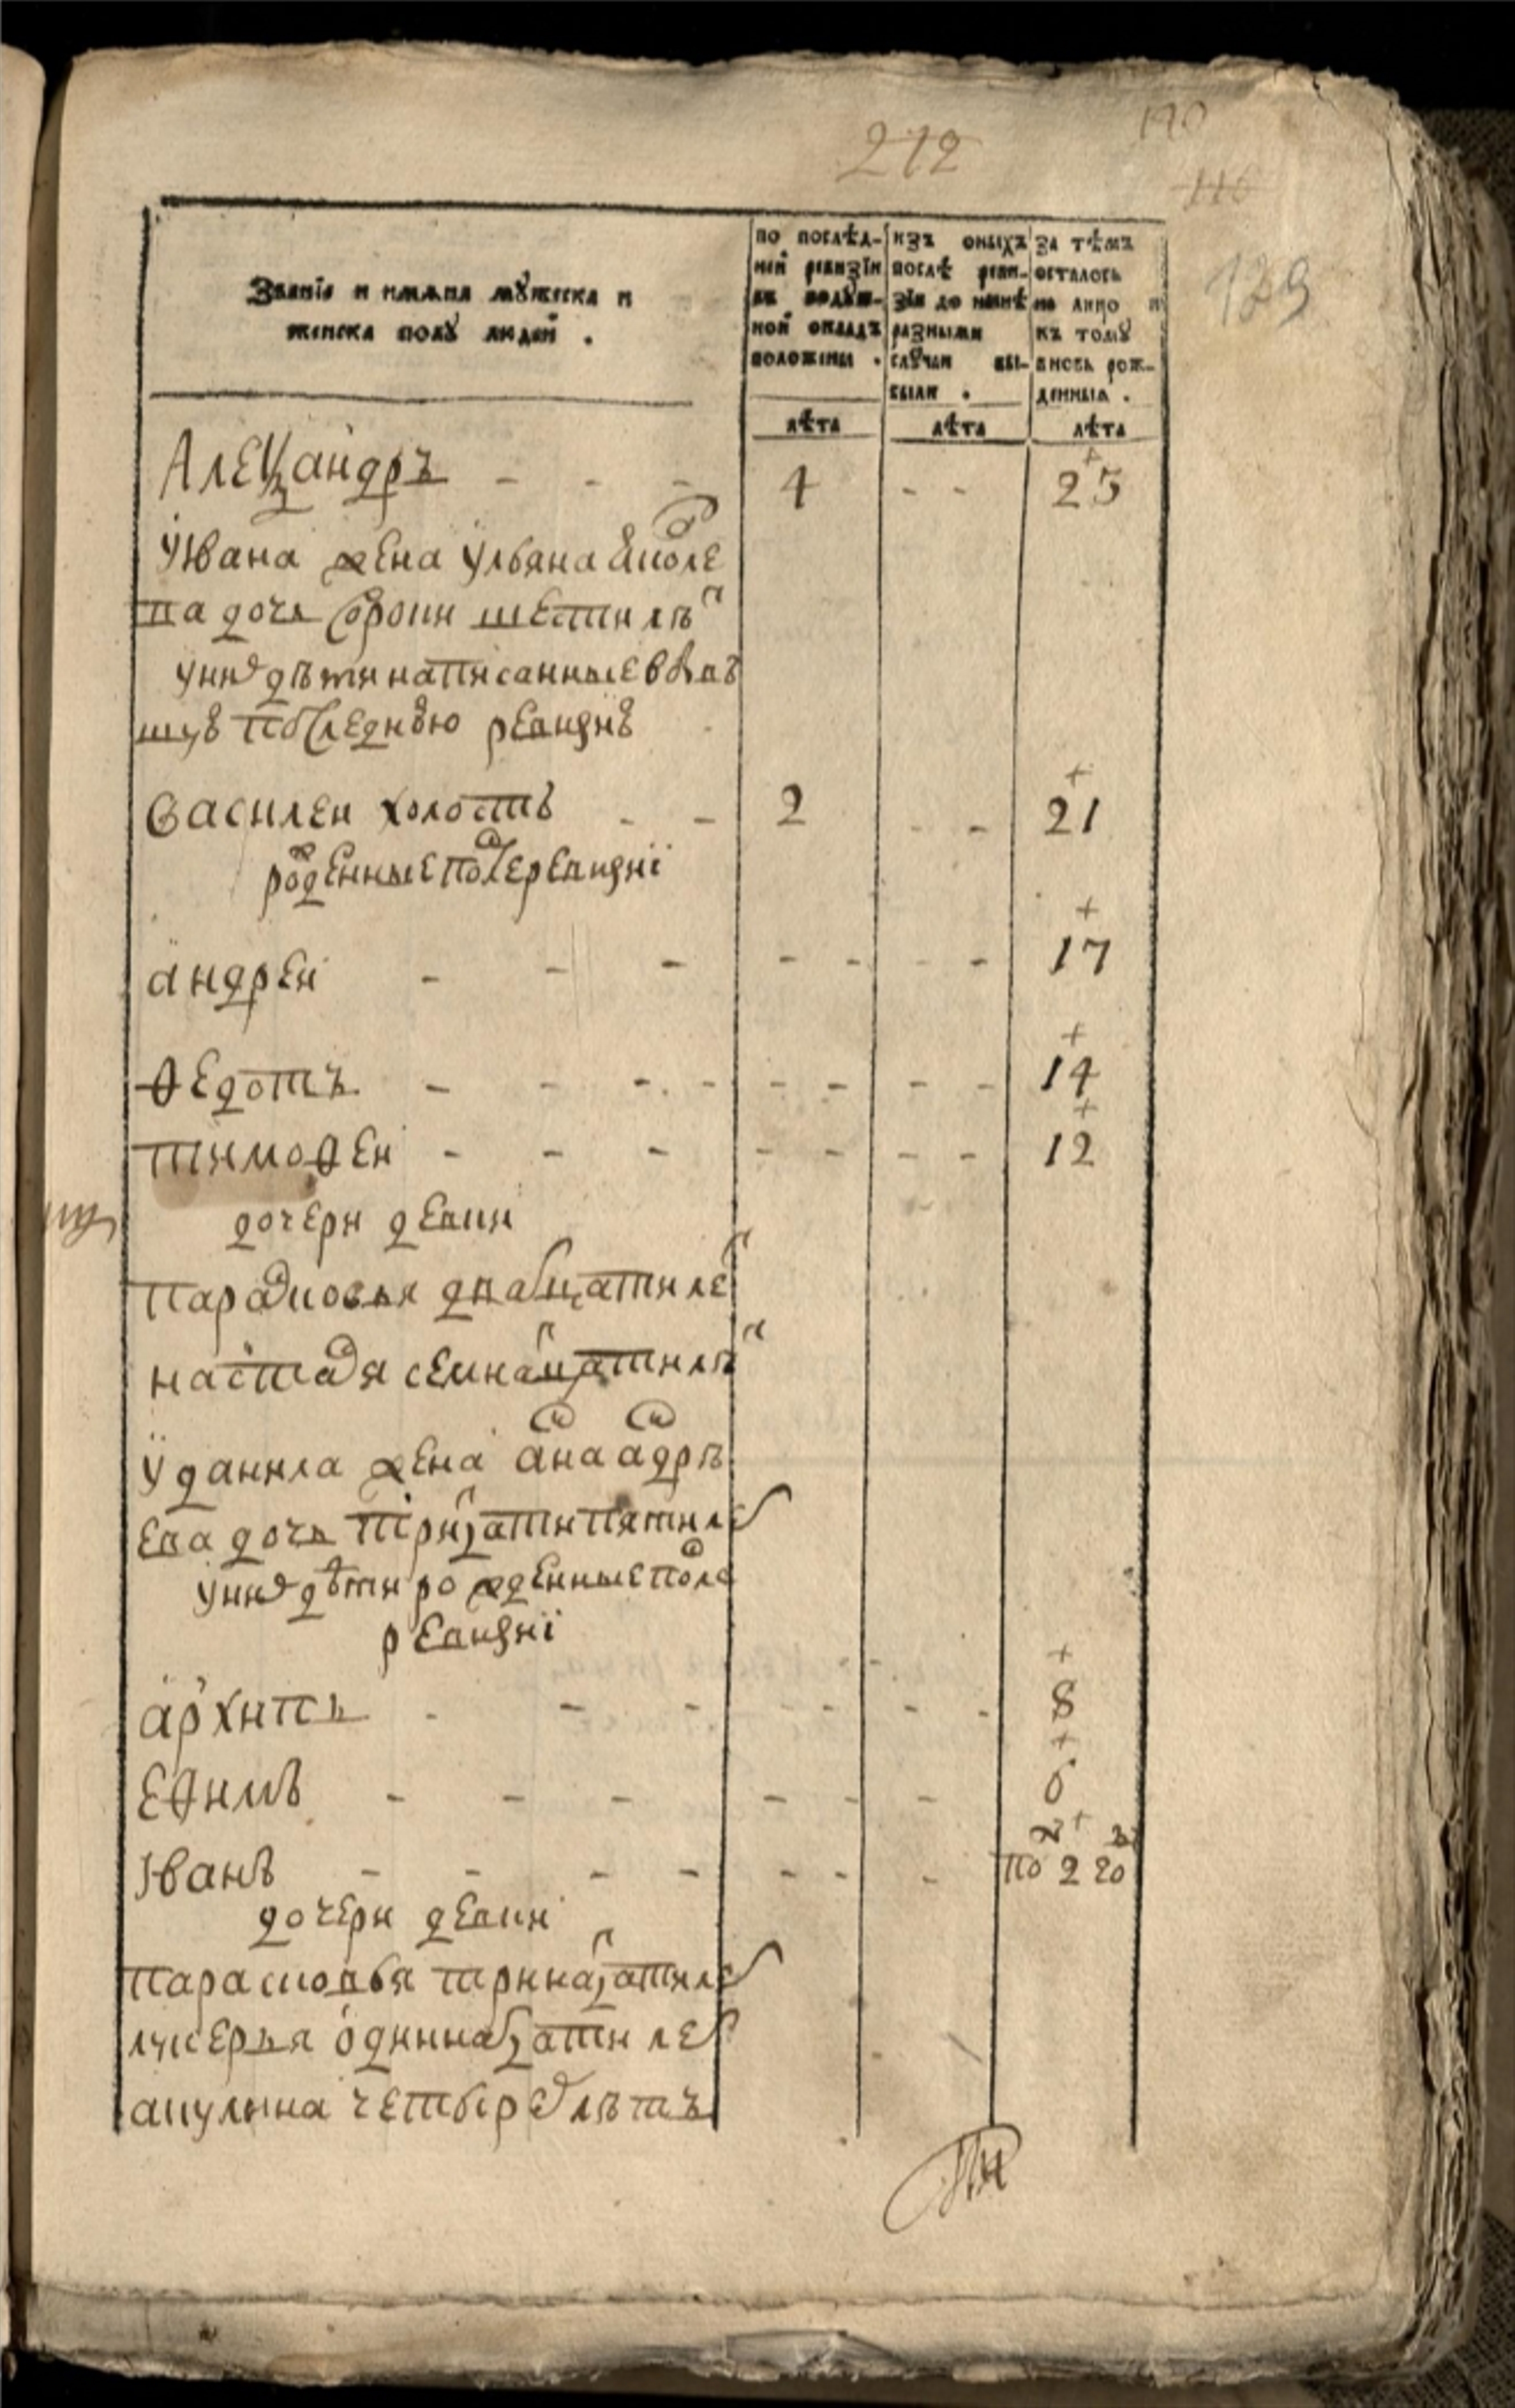 212
170
116
129
Званїѧ и имѧна мꙋжеска и
женска полꙋ людей .
по послѣд-
ней ревизїи
въ подꙋш-
ной окладъ
положены .
изъ оныхъ
послѣ реви-
зїи до нынѣ
разными
слꙋчаи вы-
были .
за тѣмъ
осталось
на лицо и
къ томꙋ
вновь рож-
денныѧ .
лѣта
лѣта
лѣта
Алеѯандръ - - - 4 - - 25
У Ивана жена Ульяна аиѳле
ва дочь сорони шести лѣт
у них дѣти написанные в быв
шую последнюю ревизию
Василеи холостъ - - 2 - - 21
рожденные после ревизиї
андреи - - - - - - - 17
Ѳедотъ - - - - - - - - 14
тимоѳеи - - - - - - - 12
дочери девки
парасковья двадцати лет
настася семнадцати лѣт
У данила жена ана андрѣ
ева дочь тритцати пяти лет
у них дѣти рожденные после
ревизиї
архипъ - - - - - - - 8
еѳимъ - - - - - - 6
Иванъ - - - - - - - по 2 го
дочери девки
парасковья тринатцати лет
лукерья одиннатцати лет
акулина четырех лѣтъ